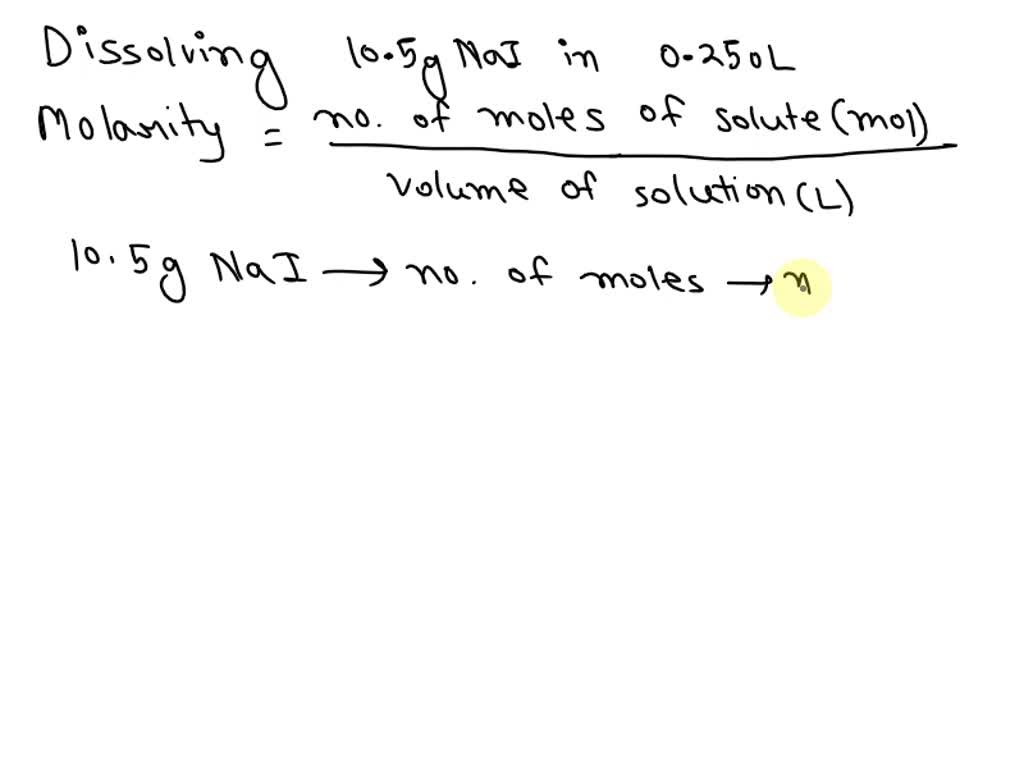 Dissolving 10.5g NaI in 0.250L
Molarity = no. of moles of solute (mol)
volume of solution (L)
10.5g NaI → no. of moles → n